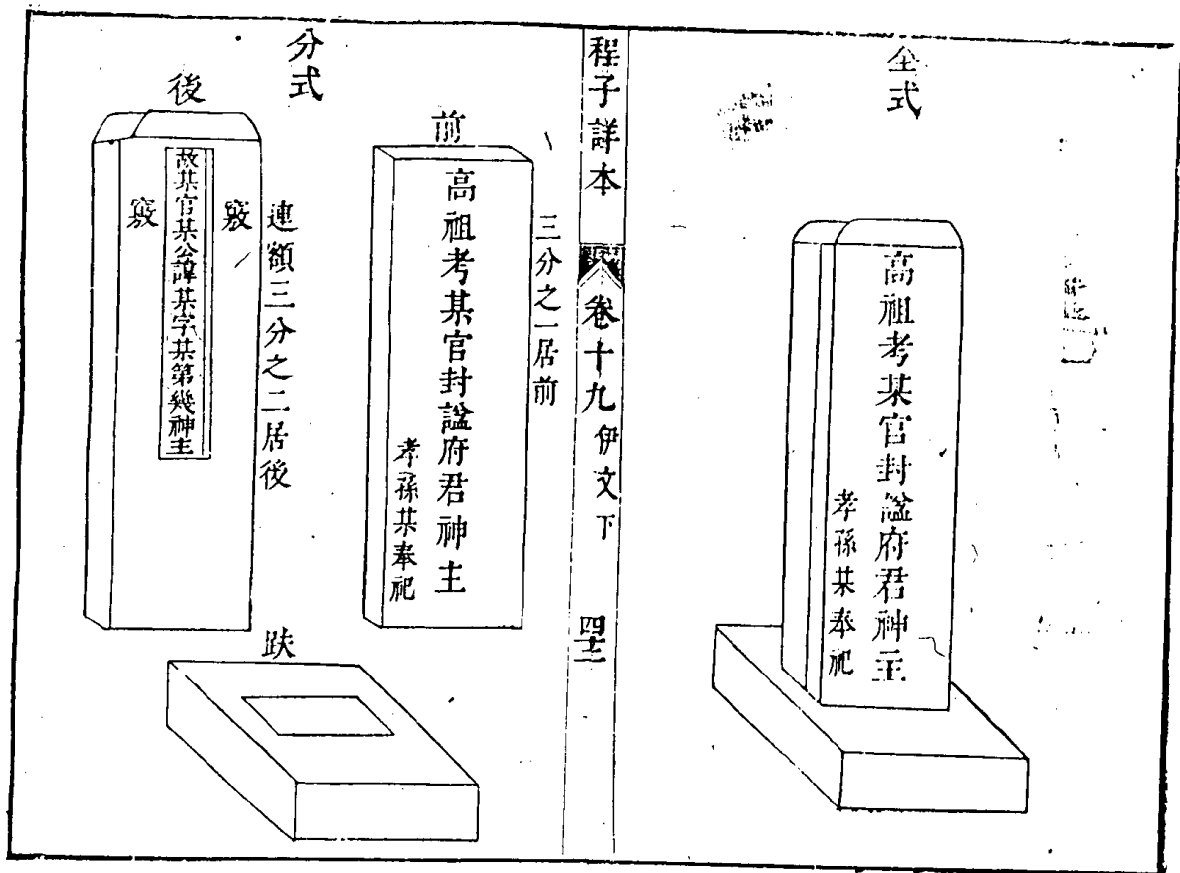 全式
高祖考某官封謚府君神主
孝孫某奉祀
程子詳本
卷十九
伊文下
分式
前
三分之一居前
高祖考某官封謚府君神主
孝孫某奉祀
後
連額三分之二居後
竅
故某官某公諱某字某第幾神主
竅
趺